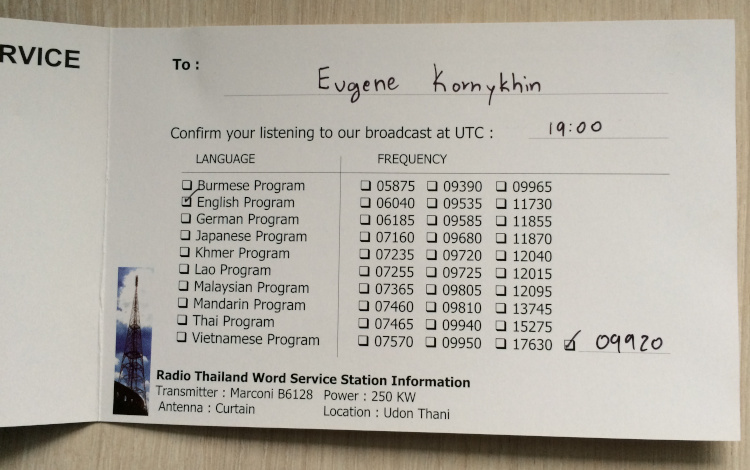 RVICE
To :
Eugene Kornykhin
Confirm your listening to our broadcast at UTC : 19:00
LANGUAGE FREQUENCY
❑ Burmese Program ❑ 05875 ❑ 09390 ❑ 09965
☑ English Program ❑ 06040 ❑ 09535 ❑ 11730
❑ German Program ❑ 06185 ❑ 09585 ❑ 11855
❑ Japanese Program ❑ 07160 ❑ 09680 ❑ 11870
❑ Khmer Program ❑ 07235 ❑ 09720 ❑ 12040
❑ Lao Program ❑ 07255 ❑ 09725 ❑ 12015
❑ Malaysian Program ❑ 07365 ❑ 09805 ❑ 12095
❑ Mandarin Program ❑ 07460 ❑ 09810 ❑ 13745
❑ Thai Program ❑ 07465 ❑ 09940 ❑ 15275
❑ Vietnamese Program ❑ 07570 ❑ 09950 ❑ 17630 ☑ 09920
Radio Thailand Word Service Station Information
Transmitter : Marconi B6128 Power : 250 KW
Antenna : Curtain Location : Udon Thani